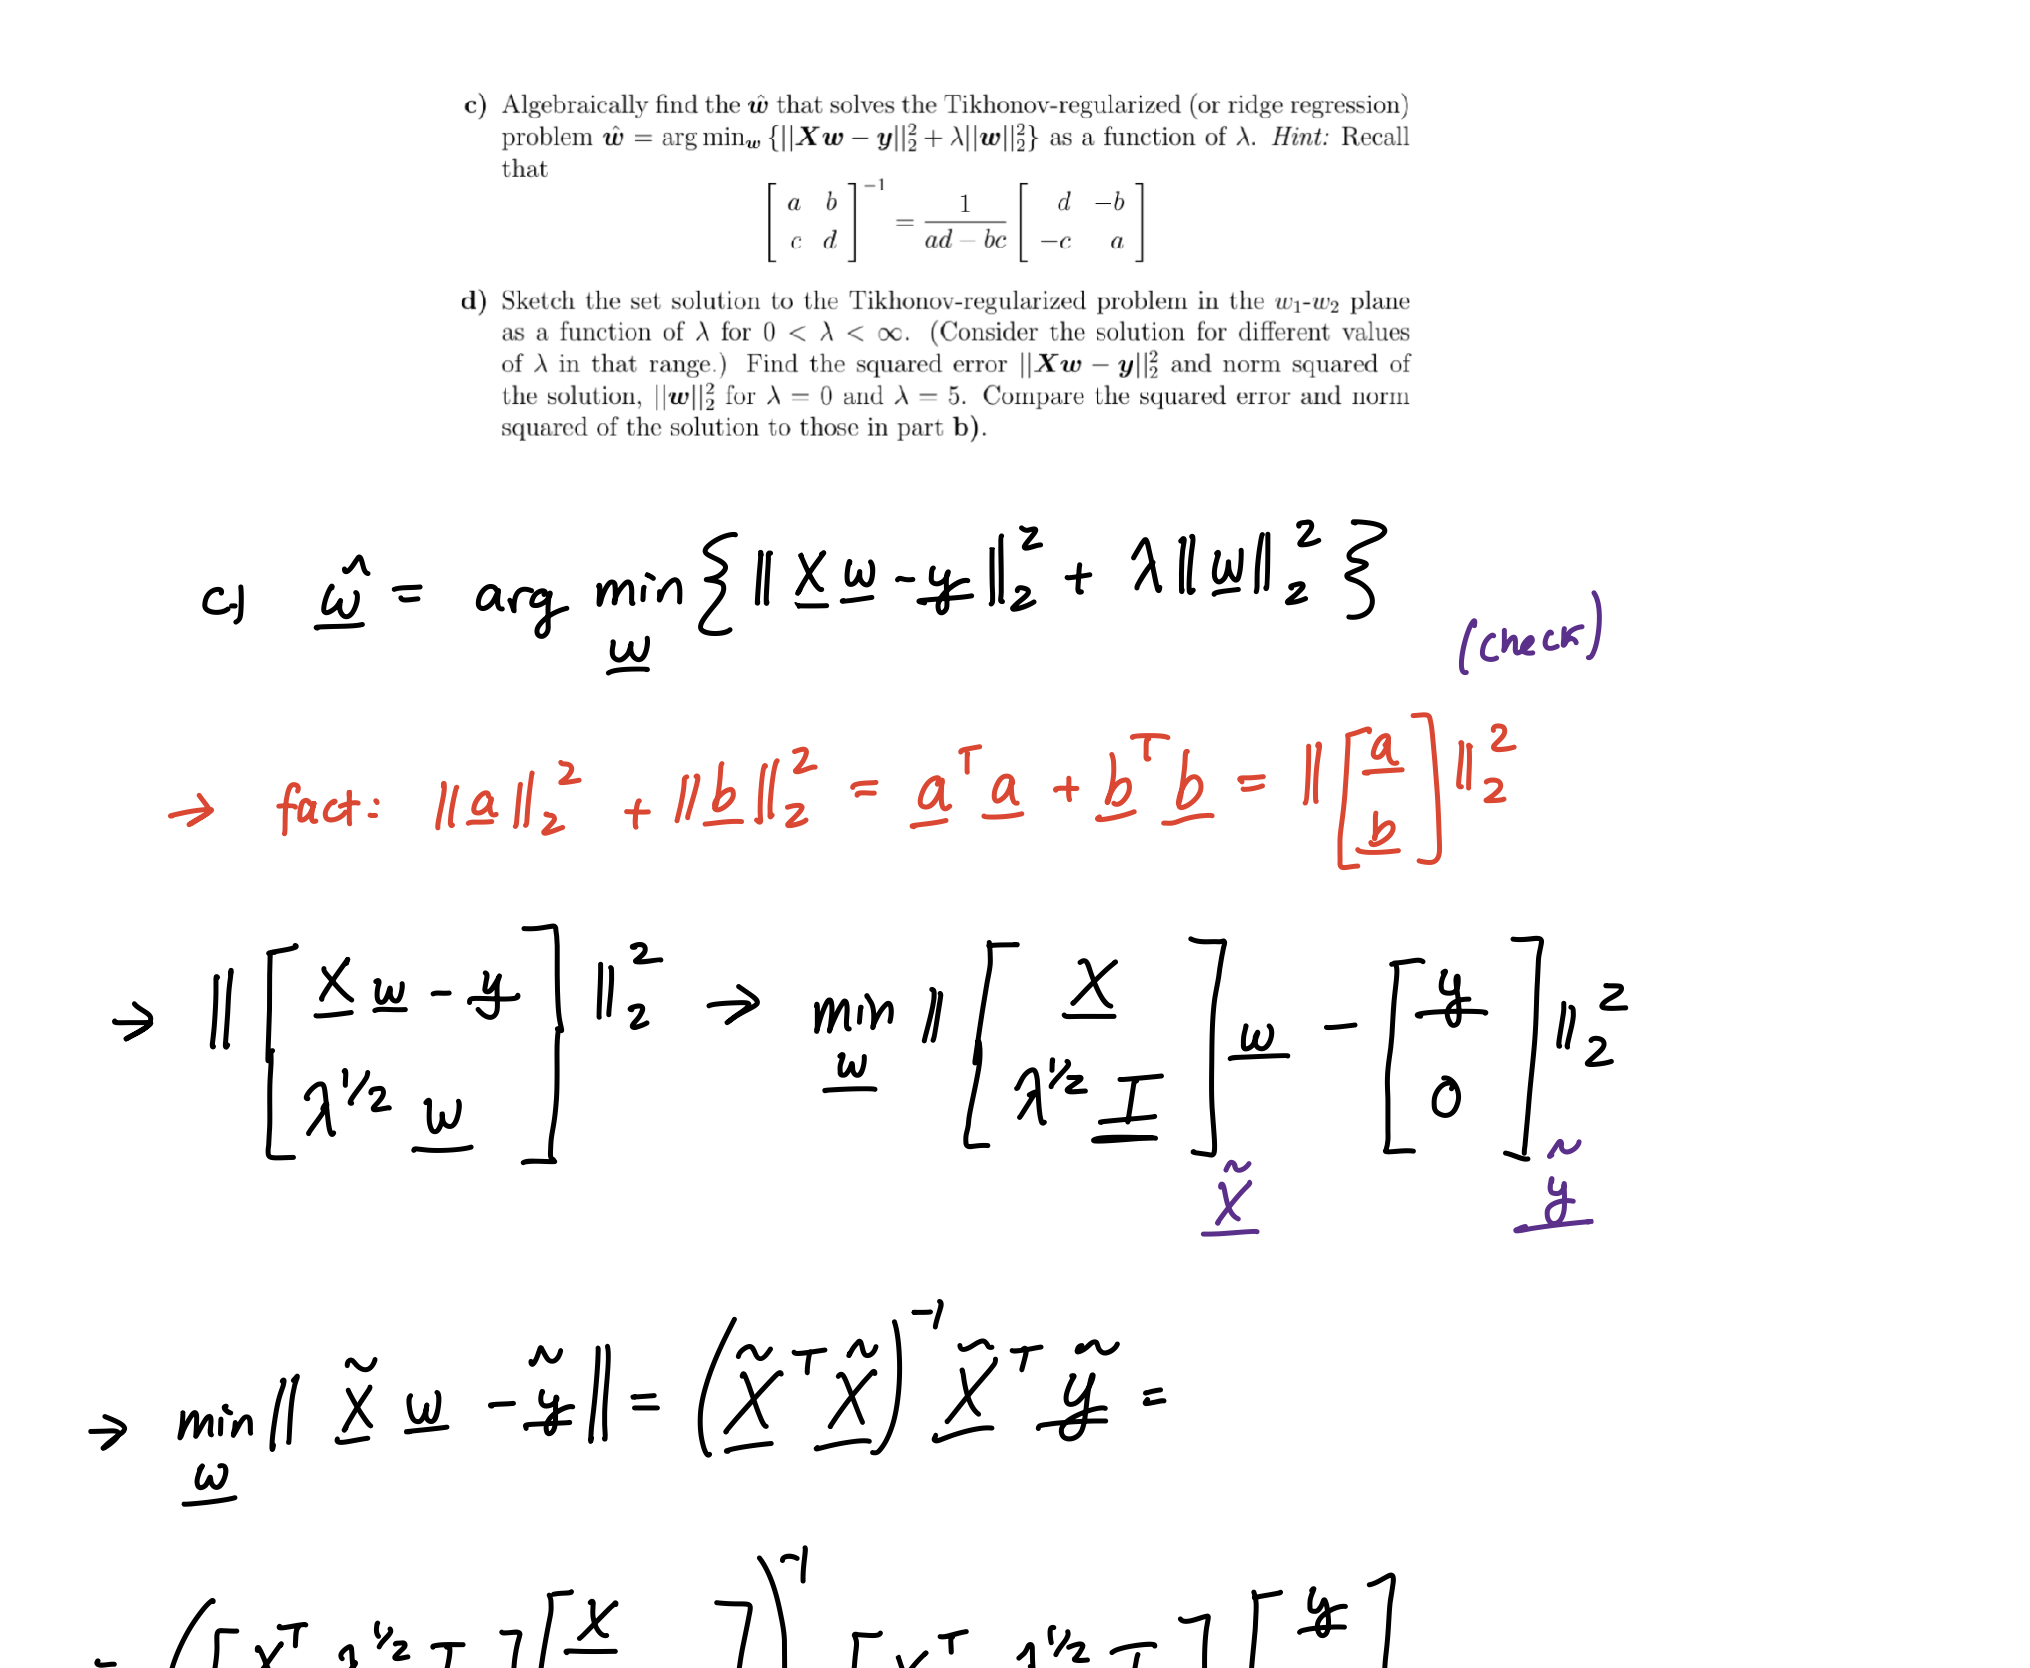 c) Algebraically find the ŵ that solves the Tikhonov-regularized (or ridge regression)
problem ŵ = arg min_w {||Xw − y||₂² + λ||w||₂²} as a function of λ. Hint: Recall
that
[ a b ; c d ]⁻¹ = 1/(ad − bc) [ d −b ; −c a ]
d) Sketch the set solution to the Tikhonov-regularized problem in the w₁-w₂ plane
as a function of λ for 0 < λ < ∞. (Consider the solution for different values
of λ in that range.) Find the squared error ||Xw − y||₂² and norm squared of
the solution, ||w||₂² for λ = 0 and λ = 5. Compare the squared error and norm
squared of the solution to those in part b).
c) ŵ = arg min_w { ||X w - y||₂² + λ||w||₂² }
(check)
→ fact: ||a||₂² + ||b||₂² = aᵀa + bᵀb = ||[ a ; b ]||₂²
→ ||[ X w - y ; λ^1/2 w ]||₂² → min_w ||[ X ; λ^1/2 I ] w - [ y ; 0 ]||₂²
X̃ ỹ
→ min_w || X̃ w - ỹ || = (X̃ᵀ X̃)⁻¹ X̃ᵀ ỹ =
= ([ Xᵀ λ^1/2 I ][ X ])⁻¹ [ Xᵀ λ^1/2 I ][ y ]